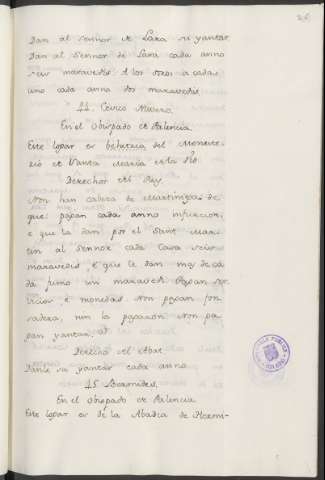 Dan al sennor de Lara su yantar
Dan al Sennor de Lara cada anno
seis maravedis. A los otros a cada
uno cada anno dos maravedis.
44. Cevico Navero.
En el Obispado de Palencia.
Este logar es behetria del Moneste-
rio de Santa Maria
Derechos del Rey
Non han cabeza de Martiniega de
que pagan cada anno infurcion,
e que la dan por el Sant Mar-
tin al Sennor cada Casa seis
maravedis e que le dan mas de ca-
da fumo un maravedi Pagan ser-
vicios e monedas Non pagan fon-
sadera, nin la pagaron Non pa-
gan yantar.
Derecho del Abat
Danle su yantar cada anno
45 Bermudes.
En el Obispado de Palencia
Este logar es de la Abadia de Hermi-